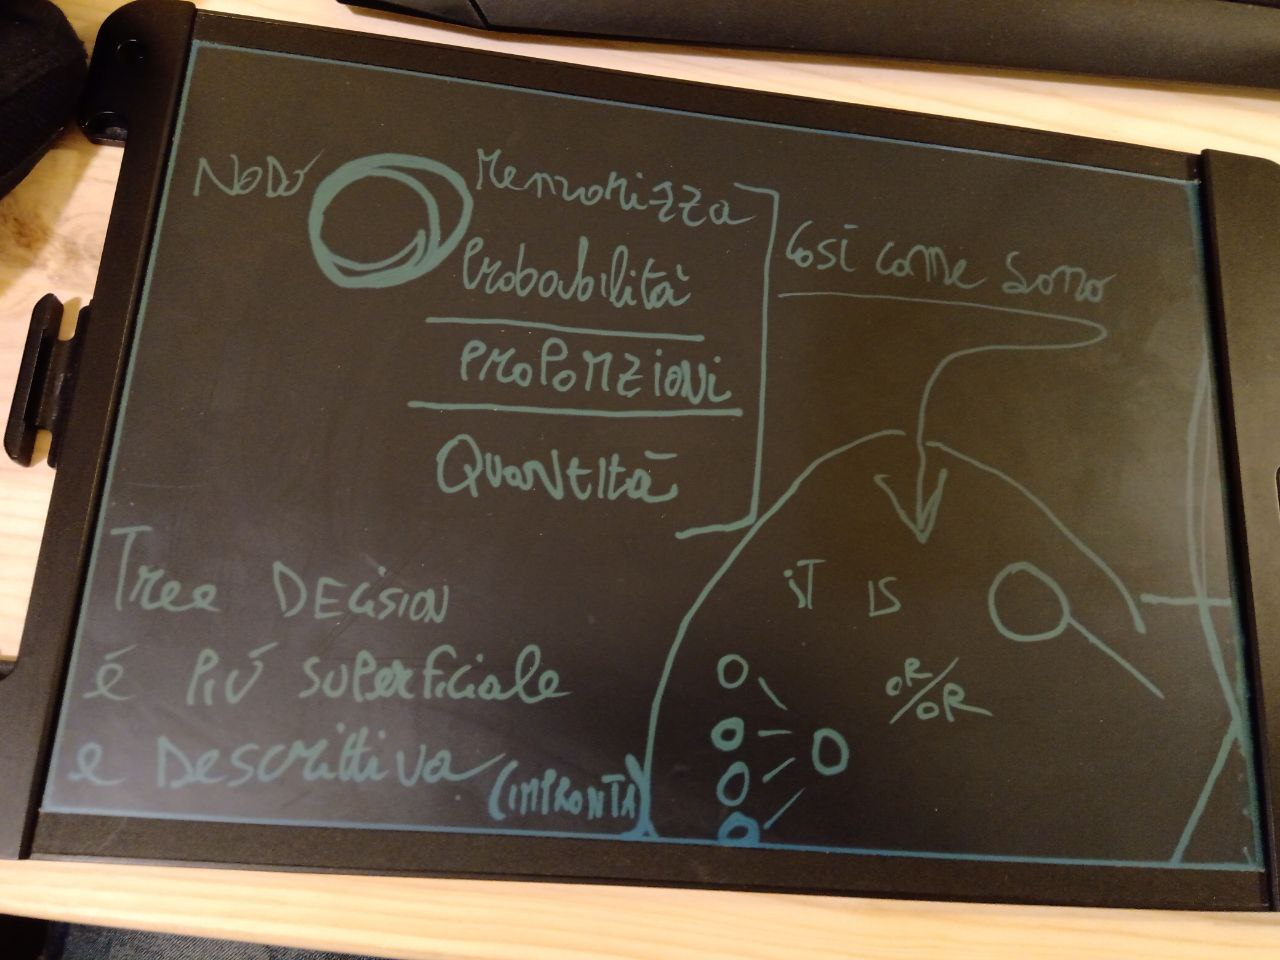 NODO
Memorizza
Probabilità
PROPORZIONI
Quantità
Così come sono
Tree DECISION
é PIÚ SUPERficiale
e DescRittiva
(IMPRONTA)
iT IS
OR/OR